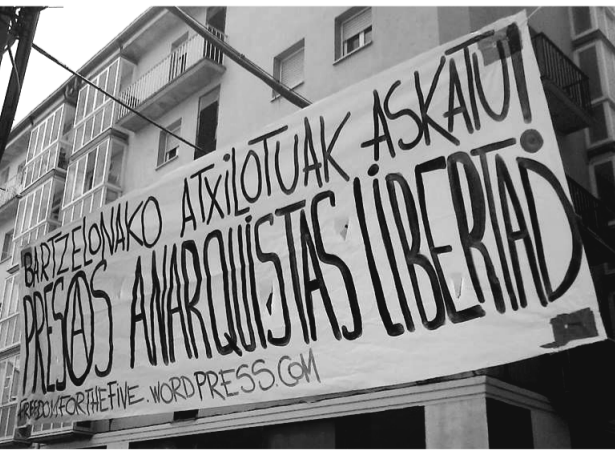 BARTZELONAKO ATXILOTUAK ASKATU!
PRESⒶS ANARQUISTAS LIBERTAD
FREEDOMFORTHEFIVE.WORDPRESS.COM